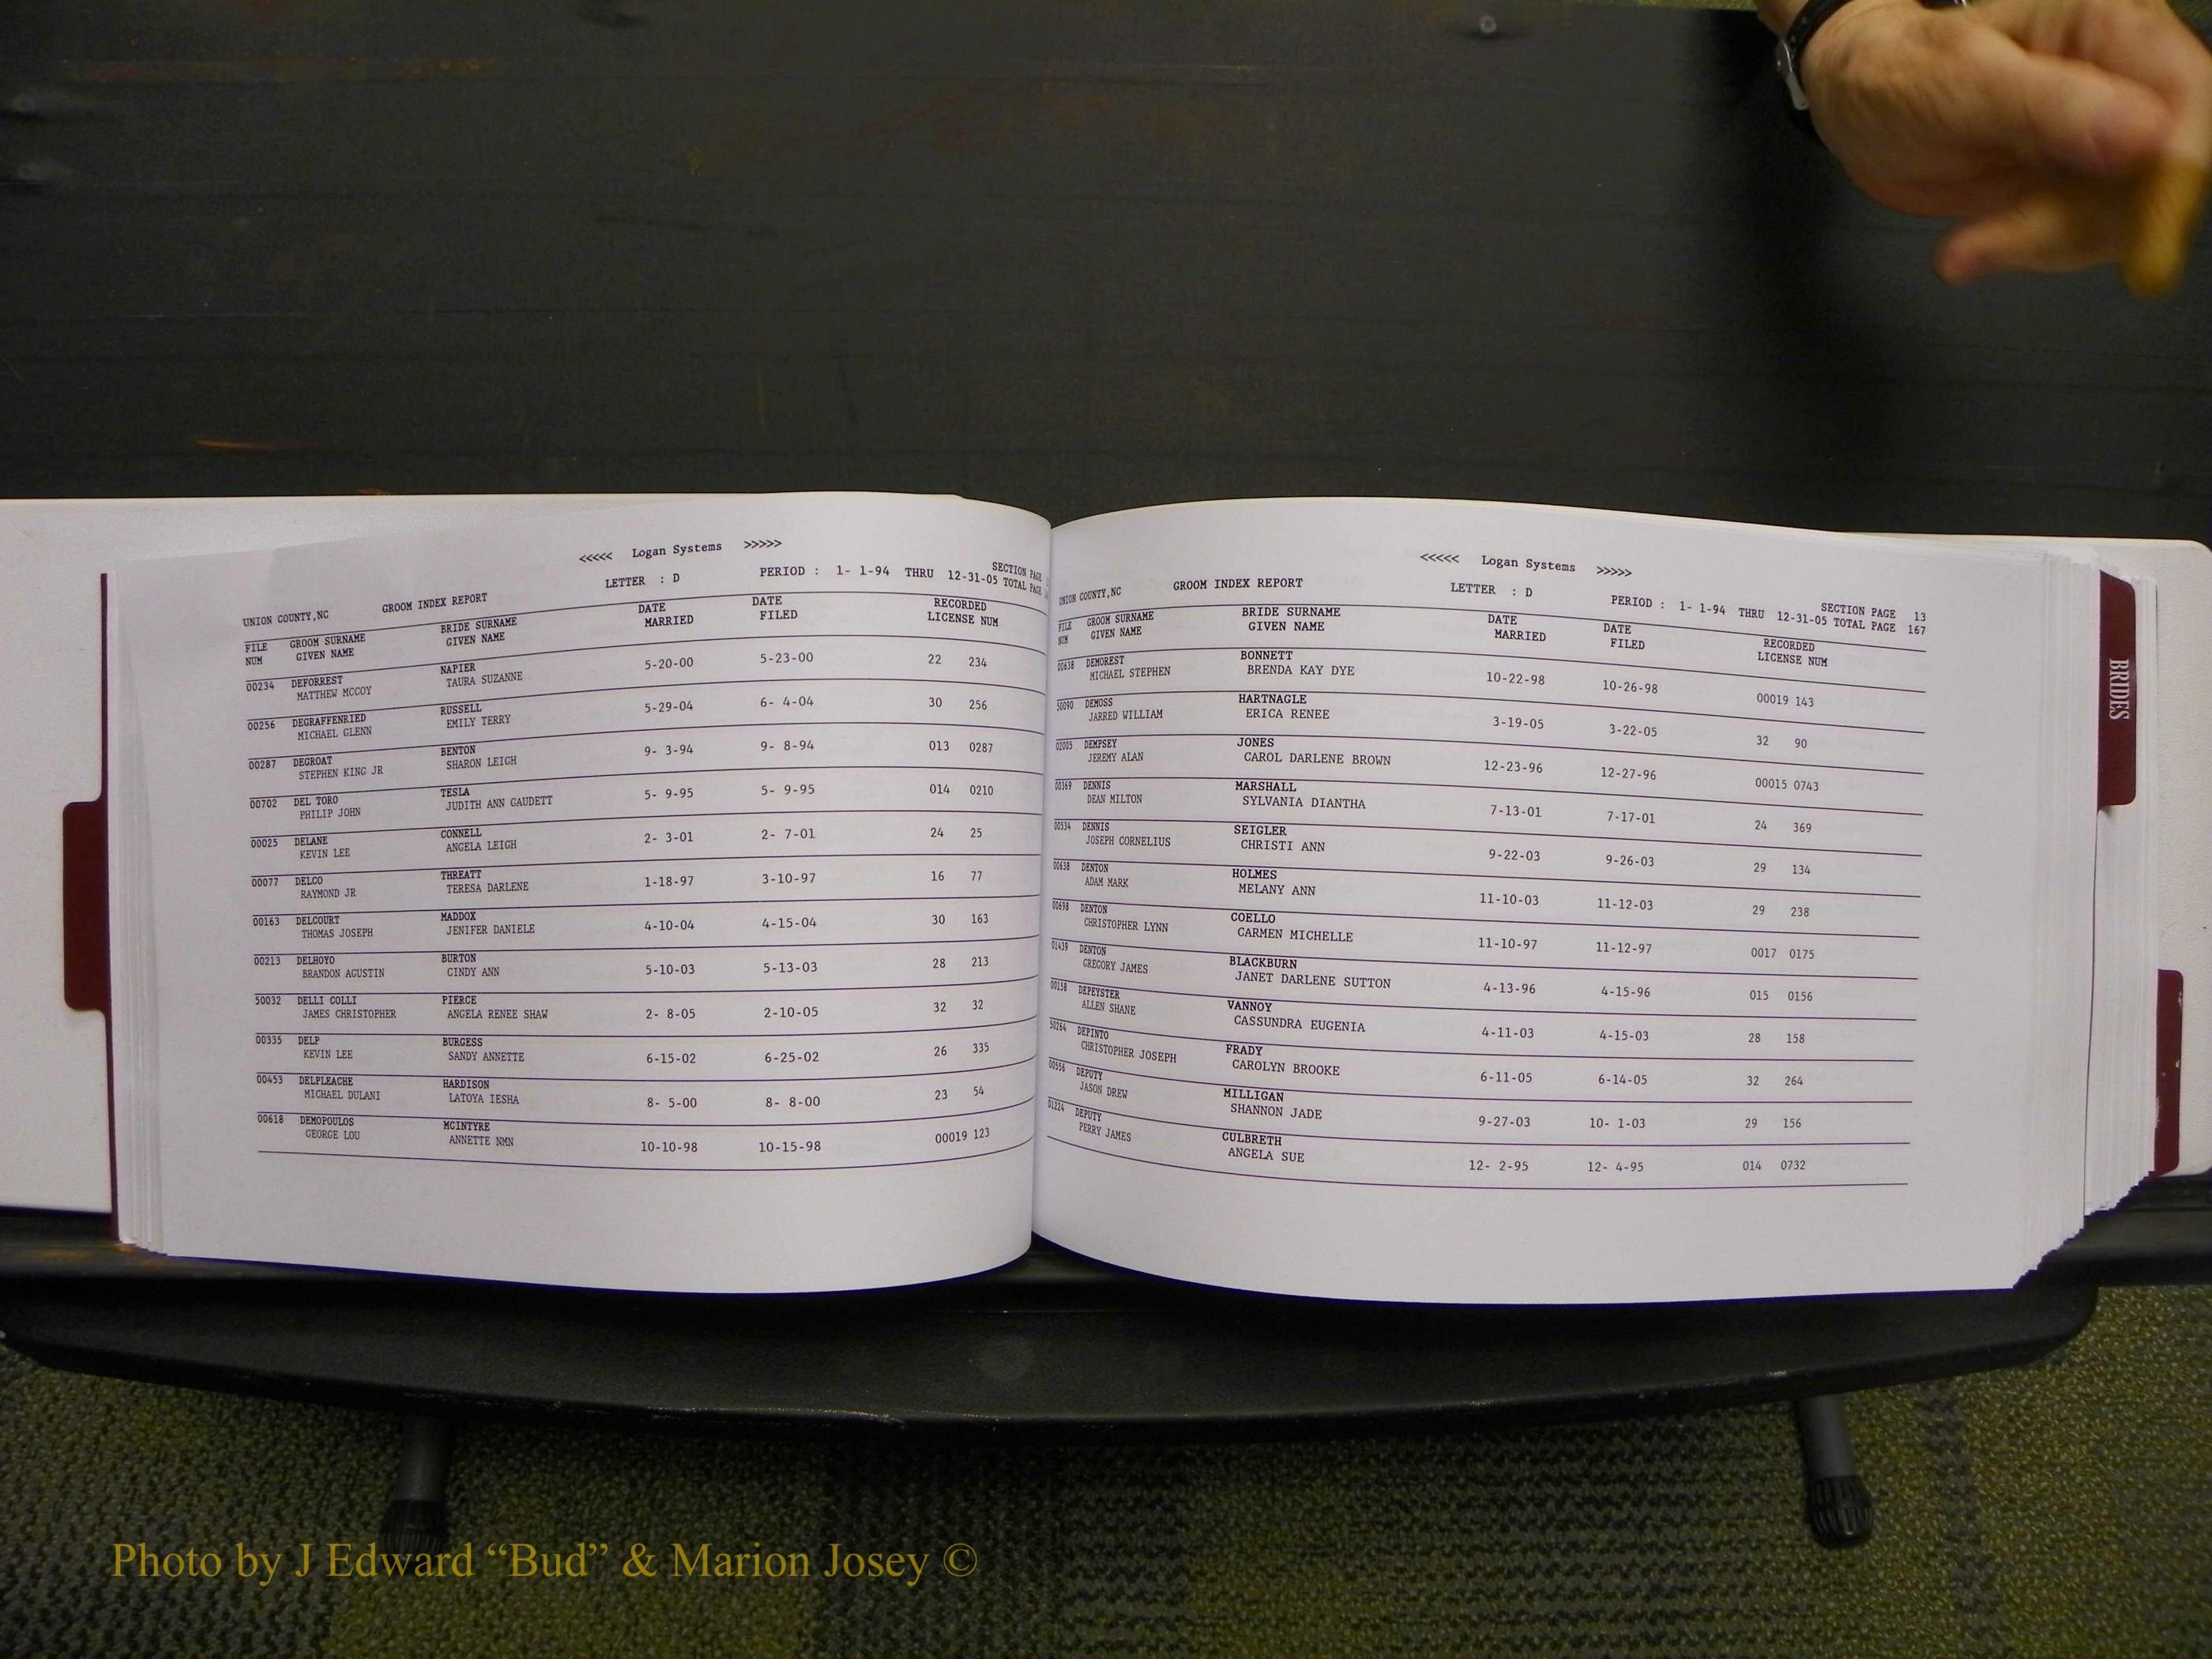 <<<<< Logan Systems >>>>>
UNION COUNTY,NC GROOM INDEX REPORT LETTER : D PERIOD : 1- 1-94 THRU 12-31-05 SECTION PAGE
TOTAL PAGE
FILE GROOM SURNAME BRIDE SURNAME DATE DATE RECORDED
NUM GIVEN NAME GIVEN NAME MARRIED FILED LICENSE NUM
00234 DEFORREST NAPIER 5-20-00 5-23-00 22 234
MATTHEW MCCOY TAURA SUZANNE
00256 DEGRAFFENRIED RUSSELL 5-29-04 6- 4-04 30 256
MICHAEL GLENN EMILY TERRY
00287 DEGROAT BENTON 9- 3-94 9- 8-94 013 0287
STEPHEN KING JR SHARON LEIGH
00702 DEL TORO TESLA 5- 9-95 5- 9-95 014 0210
PHILIP JOHN JUDITH ANN GAUDETT
00025 DELANE CONNELL 2- 3-01 2- 7-01 24 25
KEVIN LEE ANGELA LEIGH
00077 DELCO THREATT 1-18-97 3-10-97 16 77
RAYMOND JR TERESA DARLENE
00163 DELCOURT MADDOX 4-10-04 4-15-04 30 163
THOMAS JOSEPH JENIFER DANIELE
00213 DELHOYO BURTON 5-10-03 5-13-03 28 213
BRANDON AGUSTIN CINDY ANN
50032 DELLI COLLI PIERCE 2- 8-05 2-10-05 32 32
JAMES CHRISTOPHER ANGELA RENEE SHAW
00335 DELP BURGESS 6-15-02 6-25-02 26 335
KEVIN LEE SANDY ANNETTE
00453 DELPLEACHE HARDISON 8- 5-00 8- 8-00 23 54
MICHAEL DULANI LATOYA IESHA
00618 DEMOPOULOS MCINTYRE 10-10-98 10-15-98 00019 123
GEORGE LOU ANNETTE NMN
<<<<< Logan Systems >>>>>
UNION COUNTY,NC GROOM INDEX REPORT LETTER : D PERIOD : 1- 1-94 THRU 12-31-05 SECTION PAGE 13
TOTAL PAGE 167
FILE GROOM SURNAME BRIDE SURNAME DATE DATE RECORDED
NUM GIVEN NAME GIVEN NAME MARRIED FILED LICENSE NUM
00638 DEMOREST BONNETT 10-22-98 10-26-98 00019 143
MICHAEL STEPHEN BRENDA KAY DYE
50090 DEMOSS HARTNAGLE 3-19-05 3-22-05 32 90
JARRED WILLIAM ERICA RENEE
02005 DEMPSEY JONES 12-23-96 12-27-96 00015 0743
JEREMY ALAN CAROL DARLENE BROWN
00369 DENNIS MARSHALL 7-13-01 7-17-01 24 369
DEAN MILTON SYLVANIA DIANTHA
00534 DENNIS SEIGLER 9-22-03 9-26-03 29 134
JOSEPH CORNELIUS CHRISTI ANN
00638 DENTON HOLMES 11-10-03 11-12-03 29 238
ADAM MARK MELANY ANN
00698 DENTON COELLO 11-10-97 11-12-97 0017 0175
CHRISTOPHER LYNN CARMEN MICHELLE
01439 DENTON BLACKBURN 4-13-96 4-15-96 015 0156
GREGORY JAMES JANET DARLENE SUTTON
00158 DEPEYSTER VANNOY 4-11-03 4-15-03 28 158
ALLEN SHANE CASSUNDRA EUGENIA
50264 DEPINTO FRADY 6-11-05 6-14-05 32 264
CHRISTOPHER JOSEPH CAROLYN BROOKE
00556 DEPUTY MILLIGAN 9-27-03 10- 1-03 29 156
JASON DREW SHANNON JADE
01224 DEPUTY CULBRETH 12- 2-95 12- 4-95 014 0732
PERRY JAMES ANGELA SUE
BRIDES
Photo by J Edward “Bud” & Marion Josey ©